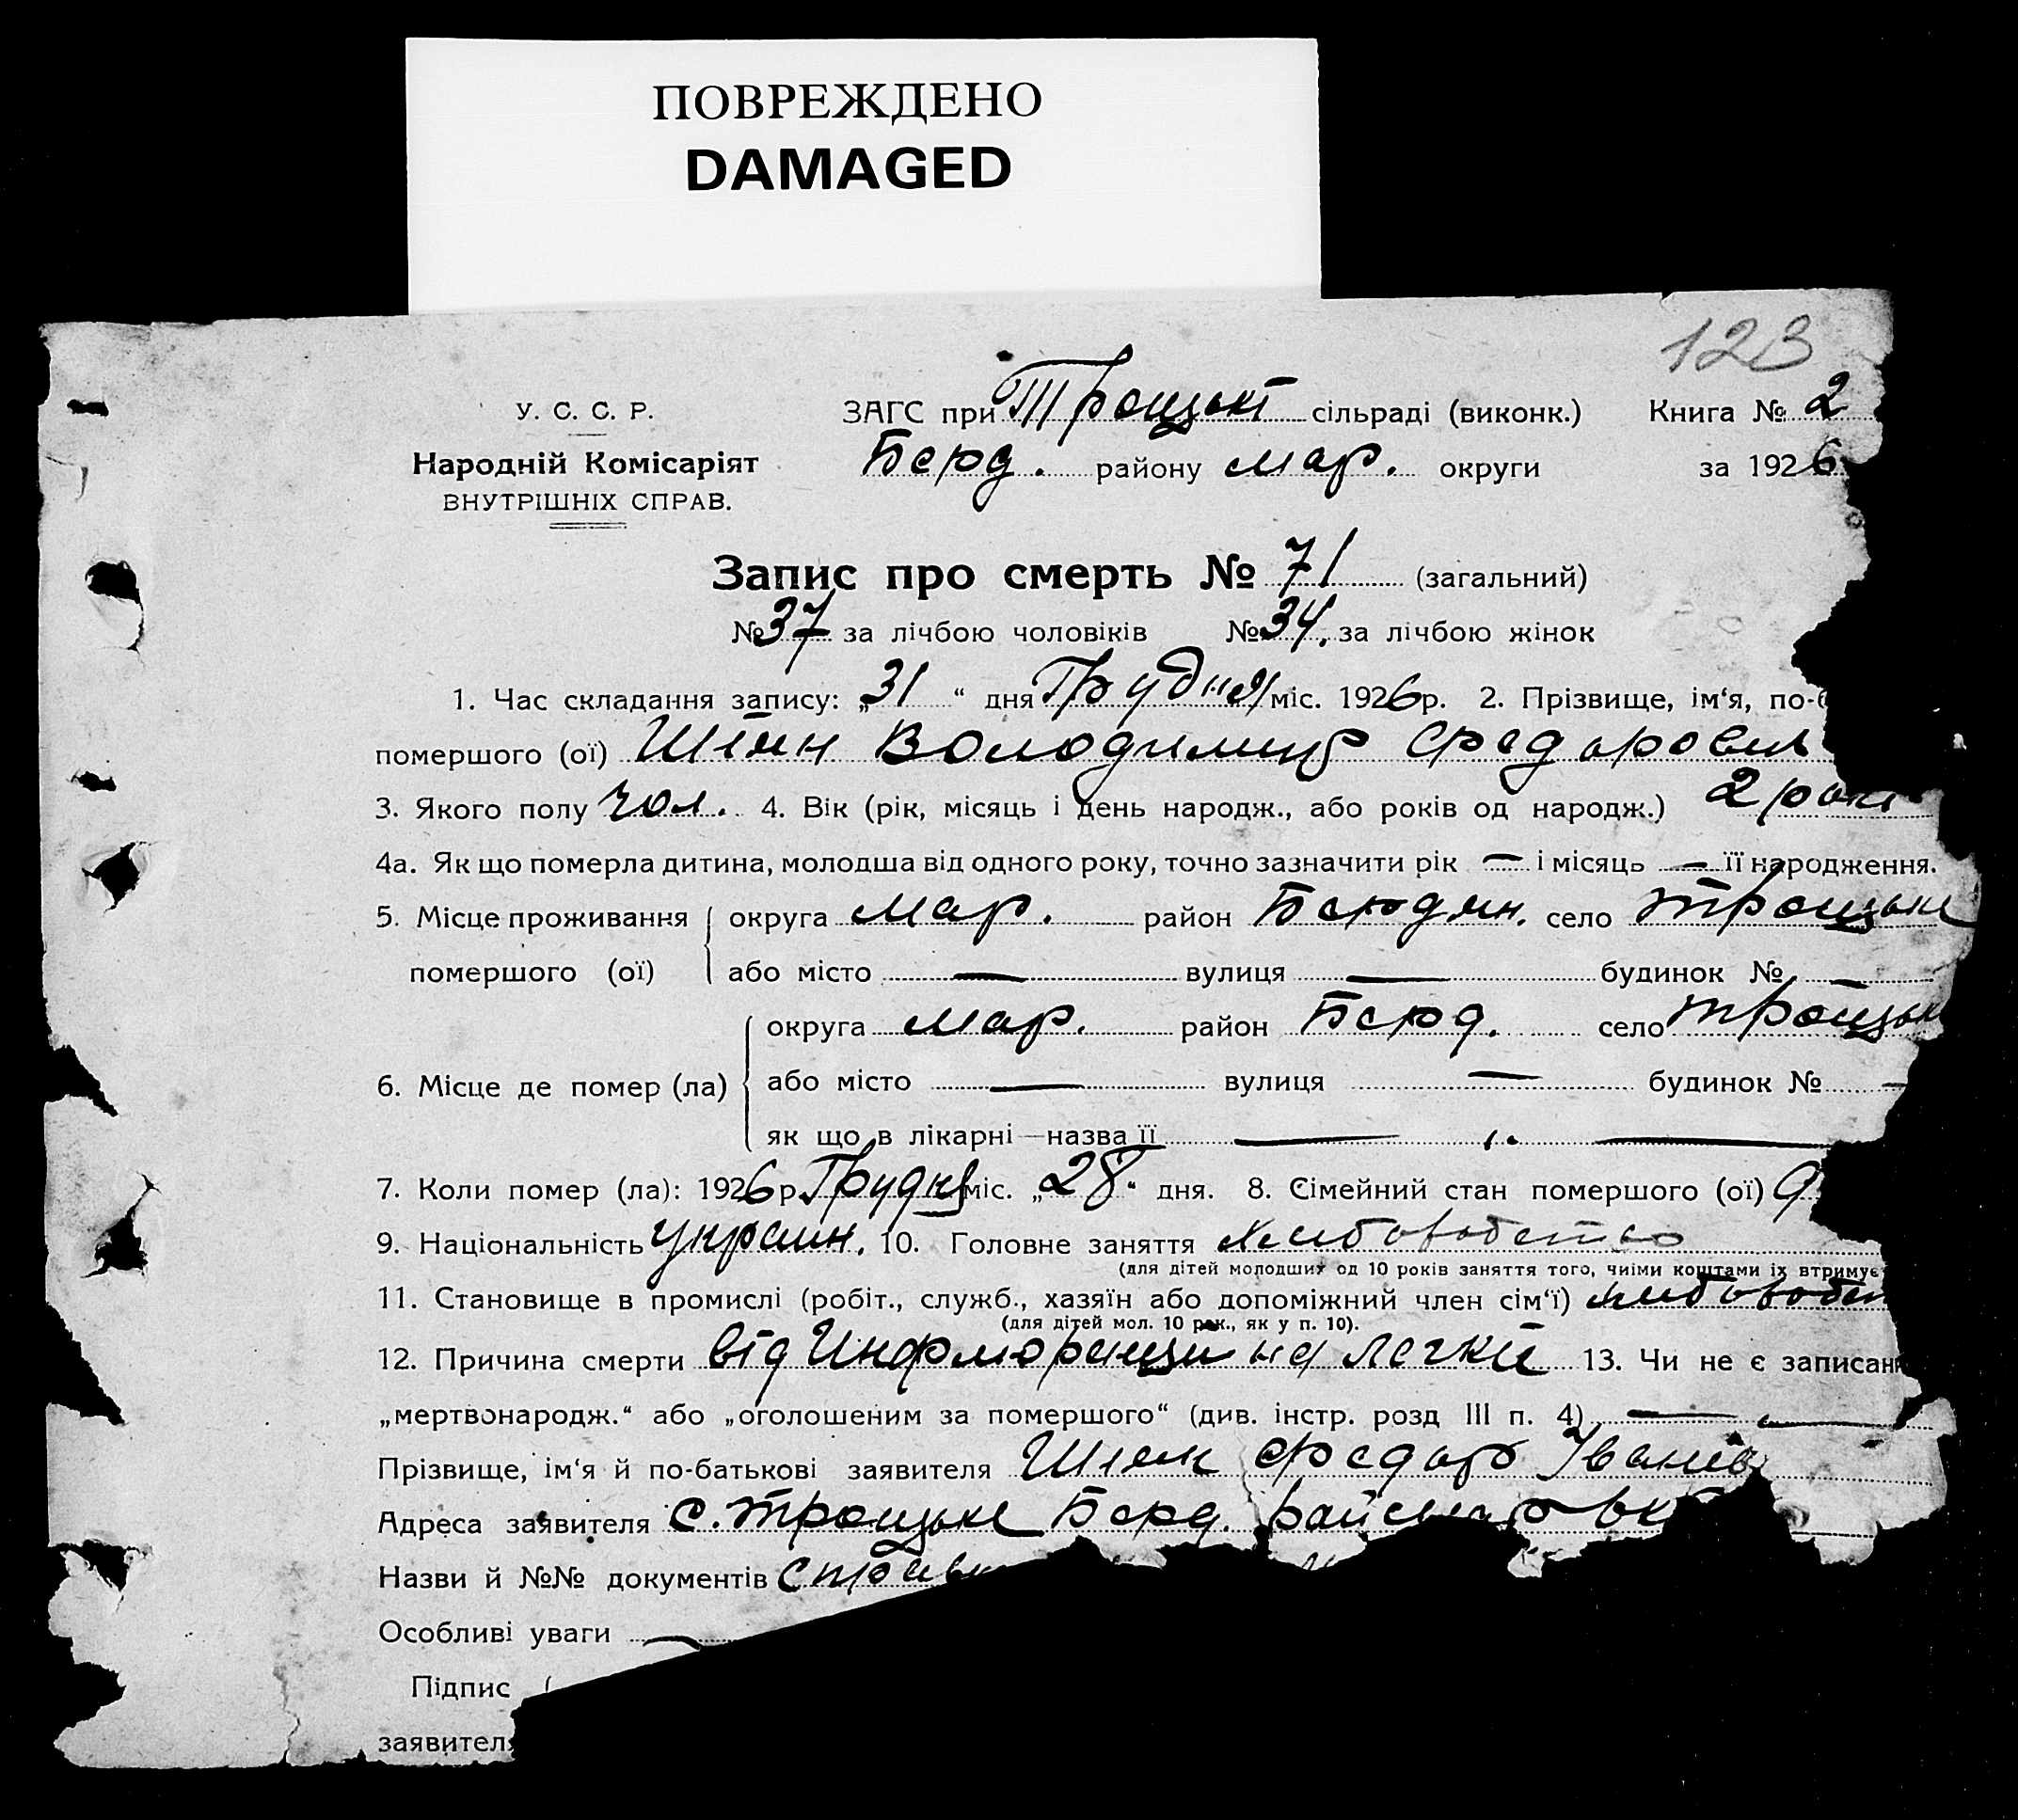 ПОВРЕЖДЕНО
DAMAGED
123
У. С. С. Р.
Народній Комісаріят
ВНУТРІШНІХ СПРАВ.
ЗАГС при Троцькі сільраді (виконк.) Книга № 2
Берд. району мар. округи за 1926
Запис про смерть № 71 (загальний)
№ 37 за лічбою чоловіків № 34. за лічбою жінок
1. Час складання запису: „31 “ дня Грудня міс. 1926р. 2. Прізвище, ім‘я, по-б
помершого (ої) Володимир Федорович
3. Якого полу чол. 4. Вік (рік, місяць і день народж., або років од народж.) 2 роки
4а. Як що померла дитина, молодша від одного року, точно зазначити рік — і місяць — її народження.
5. Місце проживання округа мар. район Бердян. село Троцьке
помершого (ої) або місто — вулиця — будинок № —
округа мар. район Берд. село Троцьк
6. Місце де помер (ла) або місто — вулиця — будинок № —
як що в лікарні—назва її — —
7. Коли помер (ла): 1926 р. Грудня міс. „28“ дня. 8. Сімейний стан помершого (ої)
9. Національність Україн. 10. Головне заняття хлиборобство
(для дітей молодших од 10 років заняття того, чиїми коштами їх втримує
11. Становище в промислі (робіт., служб., хазяїн або допоміжний член сім‘ї) хлиборобст
(для дітей мол. 10 рок., як у п. 10).
12. Причина смерти від на легкії 13. Чи не є записан
„мертвонародж.“ або „оголошеним за помершого“ (див. інстр. розд III п. 4) — —
Прізвище, ім‘я й по-батькові заявителя Федор Іванів
Адреса заявителя с. Троцьке Берд. рай
Назви й №№ документів справк
Особливі уваги —
Підпис (
заявителя